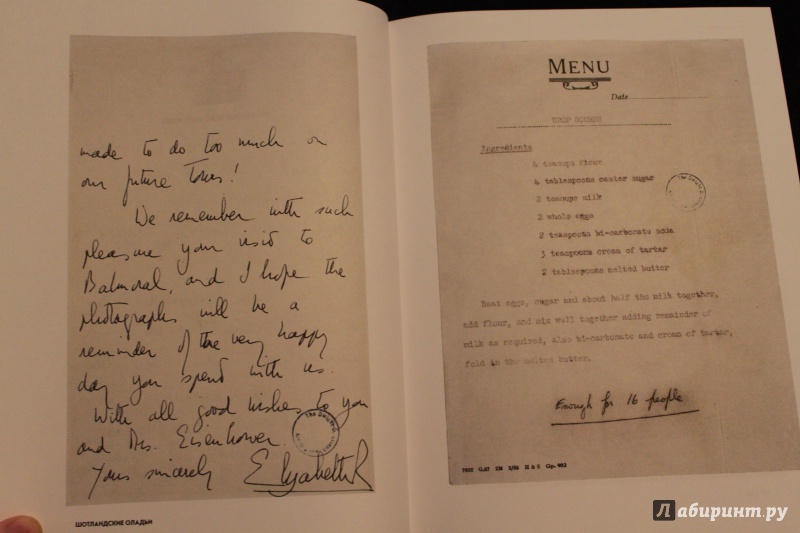 made to do too much on
our future Tours!
We remember with such
pleasure your visit to
Balmoral, and I hope the
photographs will be a
reminder of the very happy
day you spend with us.
With all good wishes to you
and Mrs. Eisenhower.
Yours sincerely
Elizabeth R
ШОТЛАНДСКИЕ ОЛАДЬИ
MENU
Date
DROP SCONES
Ingredients
4 teacups flour
4 tablespoons caster sugar
2 teacups milk
2 whole eggs
2 teaspoons bi-carbonate soda
3 teaspoons cream of tartar
2 tablespoons melted butter
Beat eggs, sugar and about half the milk together,
add flour, and mix well together adding remainder of
milk as required, also bi-carbonate and cream of tartar,
fold in the melted butter.
Enough for 16 people
7802 G.AT 2M 5/56 H & S Gp. 902
Лабиринт.ру